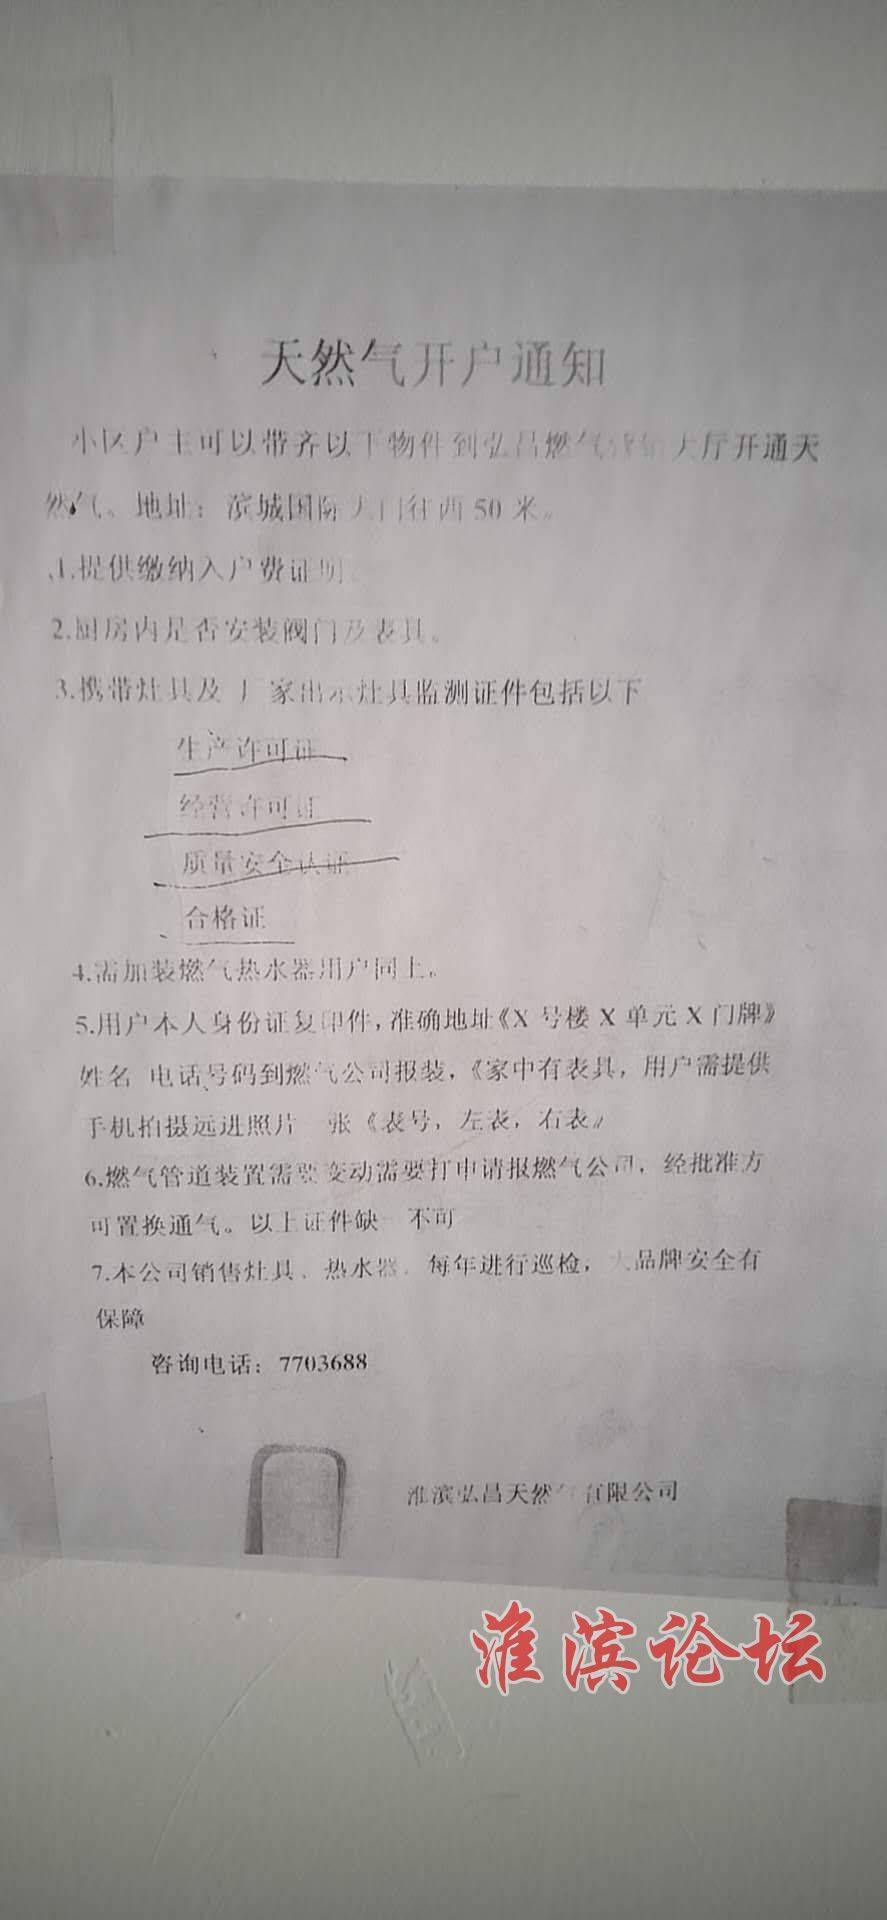 天然气开户通知
小区户主可以带齐以下物件到弘昌燃气营销大厅开通天
然气。地址：滨城国际大门往西50米。
1.提供缴纳入户费证明
2.厨房内是否安装阀门及表具。
3.携带灶具及 厂家出示灶具监测证件包括以下
生产许可证
经营许可证
质量安全认证
合格证
4.需加装燃气热水器用户同上。
5.用户本人身份证复印件，准确地址《X号楼X单元X门牌》
姓名 电话号码到燃气公司报装，《家中有表具，用户需提供
手机拍摄远进照片一张《表号，左表，右表》
6.燃气管道装置需要变动需要打申请报燃气公司，经批准方
可置换通气。以上证件缺一不可
7.本公司销售灶具、热水器、每年进行巡检，大品牌安全有
保障
咨询电话：7703688
淮滨弘昌天然气有限公司
淮滨论坛